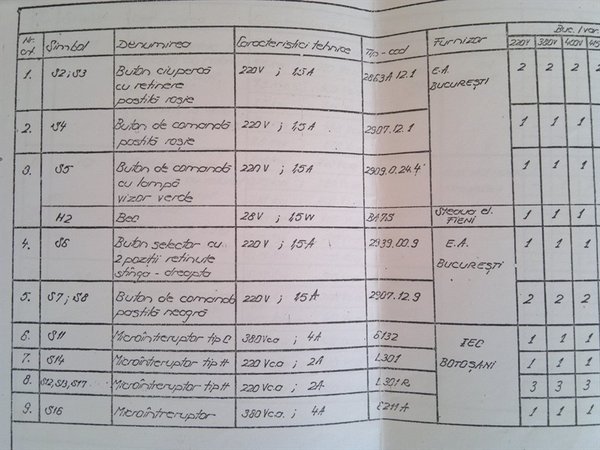 Nr. crt. Simbol Denumirea Caracteristici tehnice Tip-cod Furnizor Buc. / var.
220V 380V 400V 415
1. S2; S3 Buton ciupercă 220V ; 1,5A 2863A 12.1 E.A. 2 2 2 2
cu reținere BUCUREȘTI
pastilă roșie
2. S4 Buton de comandă 220V ; 1,5A 2907.12.1 1 1 1 1
pastilă roșie
3. S5 Buton de comandă 220V ; 1,5A 2909.0.24.4 1 1 1 1
cu lampă
vizor verde
H2 Bec 28V ; 1,5W BA7S Steaua el. FIENI 1 1 1 1
4. S6 Buton selector cu 220V ; 1,5A 2939.00.9 E.A. 1 1 1 1
2 poziții reținute BUCUREȘTI
stînga - dreapta
5. S7; S8 Buton de comandă 220V ; 1,5A 2907.12.9 2 2 2 2
pastilă neagră
6. S11 Microîntreruptor tip C 380Vca ; 4A 6132 IEC 1 1 1 1
7. S14 Microîntreruptor tip H 220Vca ; 2A L301 BOTOȘANI 1 1 1 1
8. S12, S13, S17 Microîntreruptor tip H 220Vca ; 2A L301R 3 3 3 3
9. S16 Microîntreruptor 380Vca ; 4A 6211A 1 1 1 1